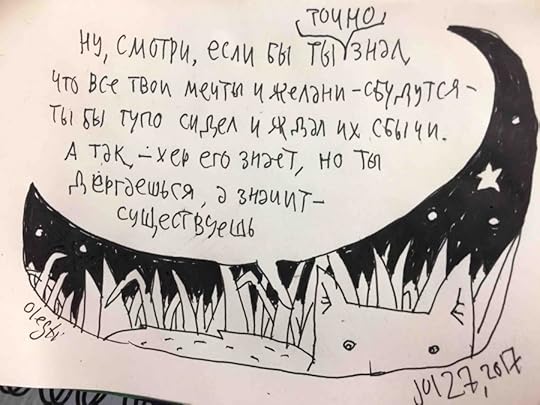 точно
Ну, смотри, если бы ты знал,
что все твои мечты и желани - сбудутся -
ты бы тупо сидел и ждал их сбычи.
А так, - хер его знает, но ты
дёргаешься, а значит -
существуешь
olegti
jul 27, 2017